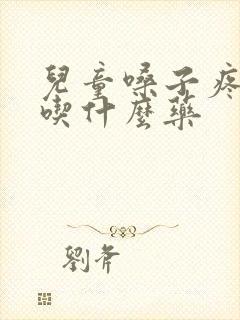 兒童嗓子疼
喫什麼藥
劉斧